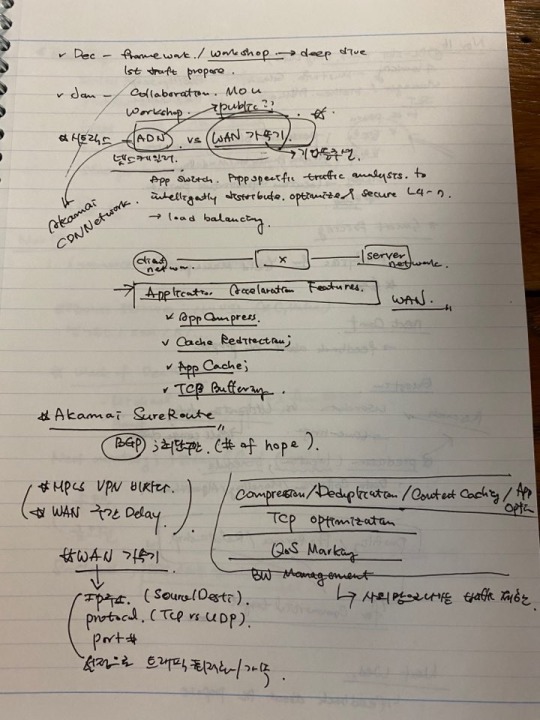 ✓ Dec – framework / workshop → deep dive
1st draft prepare.
✓ Jan – Collaboration. MOU
Workshop. public??
* 시트릭스 ADN vs WAN 가속기.
넷스케일러. → 기업
App switch. App specific traffic analysis. to
intelligently distribute, optimize & secure L4-7.
→ load balancing.
Akamai
CDN Network.
client network. X server network.
→ Application Acceleration Features. WAN.
✓ App Compress.
✓ Cache Redirection;
✓ App Cache;
✓ TCP Buffering.
* Akamai SureRoute
BGP ; 최단구간. (# of hope).
* MPCS VPN 비싸다.
* WAN 구간 Delay.
Compression/Deduplication/Content Caching/App Optim
TCP optimization
QoS Marking
BW Management
* WAN 가속기
IP주소. (Source/Desti).
protocol. (TCP vs UDP).
port #
트래픽 /가속.
↳ traffic 제한.